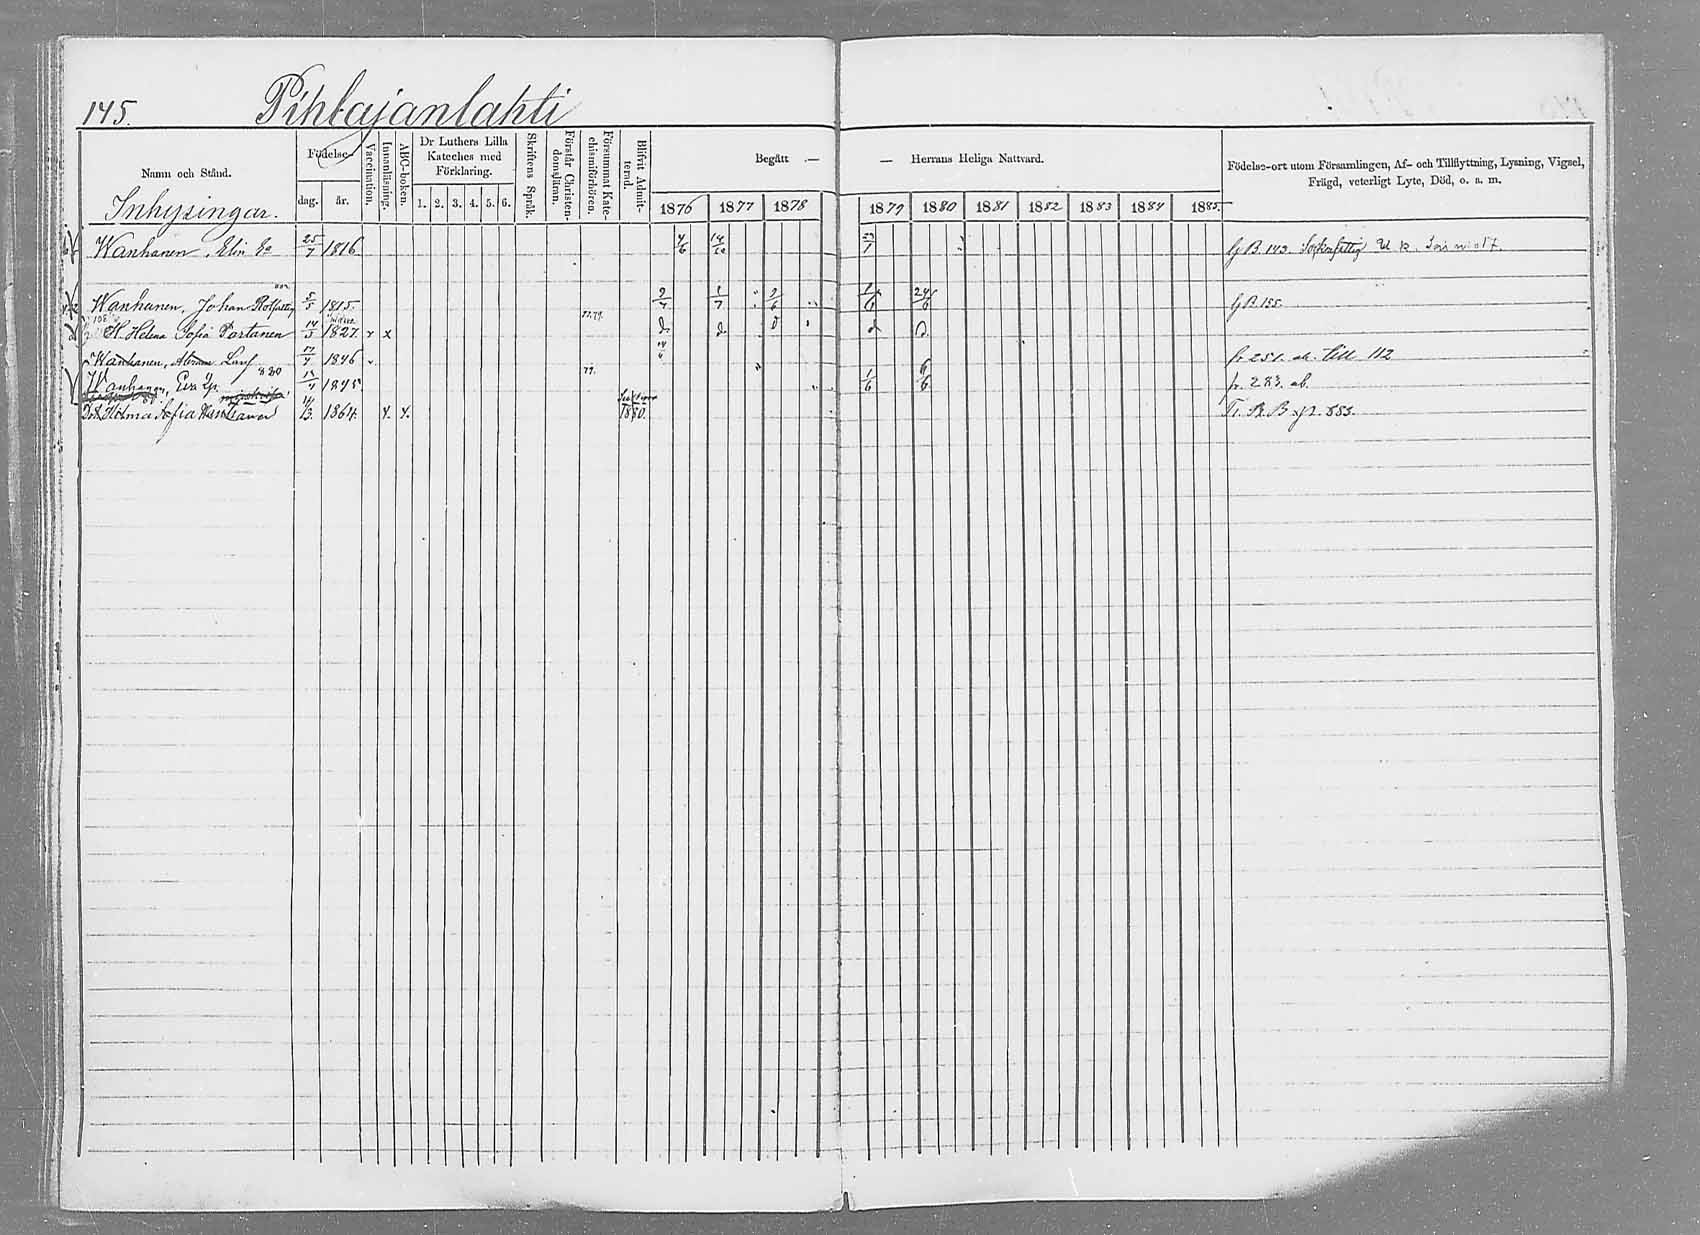 145. Pihlajanlahti
Namn och Stånd.
Födelse-
dag. år.
Vaccination.
Innanläsning.
ABC-boken.
Dr Luthers Lilla Kateches med Förklaring.
1. 2. 3. 4. 5. 6.
Skriftens Språk.
Förstår Christendomsläran.
Försummat Katechismiförhören.
Blifvit Admitterad.
Begått — — Herrans Heliga Nattvard.
1876 1877 1878 1879 1880 1881 1882 1883 1884 1885
Födelse-ort utom Församlingen, Af- och Tillflyttning, Lysning, Vigsel,
Frägd, veterligt Lyte, Död, o. s. m.
Inhysingar.
Wanhanen, Elin 25/7 1816 4/6 14/10 29/1 B. 143.
Wanhanen, Johan 5/5 1815. 1/7 24/6 B. 155
H. Helena Sofia Partanen 14/3 1827. 77.79. do do d
Wanhanen, 1846 fr 251. till 112
Wanhanen, Eva 1845 79. 1/6 6/6 fr. 283. ab.
Dr. Helma Sofia 14/3 1864. 1880. B 883.